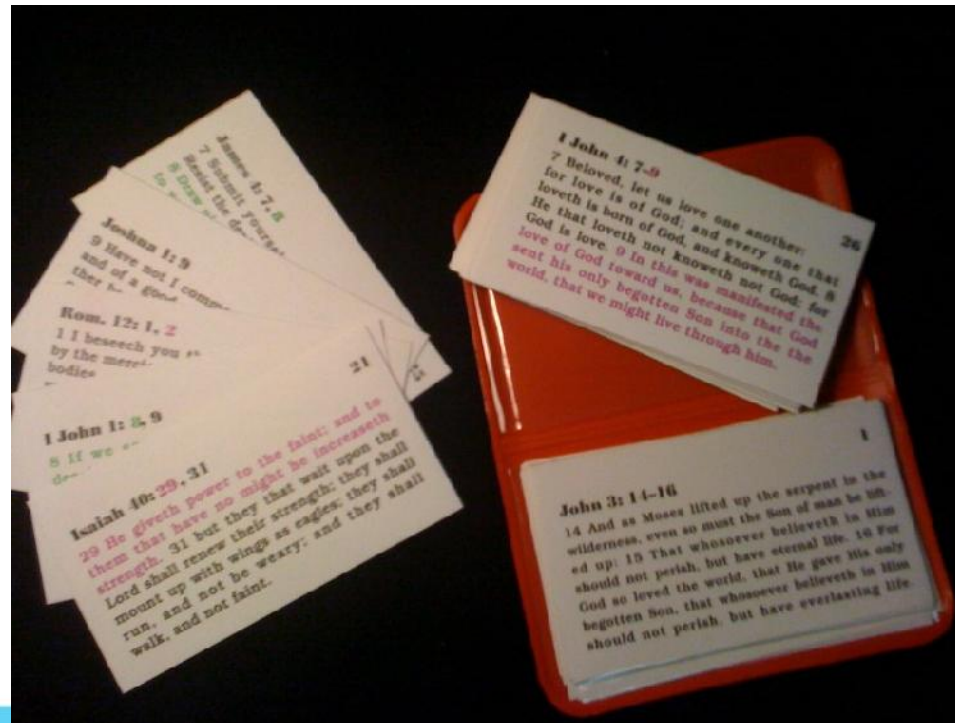 James 4: 7, 8
7 Submit
Resist the
8 Draw
Joshua 1: 9
9 Have not I
and of a good
Rom. 12: 1, 2
1 I beseech you
by the
bodies
1 John 1: 8, 9
8 If we
21
Isaiah 40: 29, 31
29 He giveth power to the faint; and to
them that have no might he increaseth
strength. 31 but they that wait upon the
Lord shall renew their strength; they shall
mount up with wings as eagles; they shall
run, and not be weary; and they shall
walk, and not faint.
1 John 4: 7-9
26
7 Beloved, let us love one another:
for love is of God; and every one that
loveth is born of God, and knoweth God. 8
He that loveth not knoweth not God; for
God is love. 9 In this was manifested the
love of God toward us, because that God
sent his only begotten Son into the the
world, that we might live through him.
1
John 3: 14-16
14 And as Moses lifted up the serpent in the
wilderness, even so must the Son of man be lift-
ed up: 15 That whosoever believeth in Him
should not perish, but have eternal life. 16 For
God so loved the world, that He gave His only
begotten Son, that whosoever believeth in Him
should not perish, but have everlasting life.